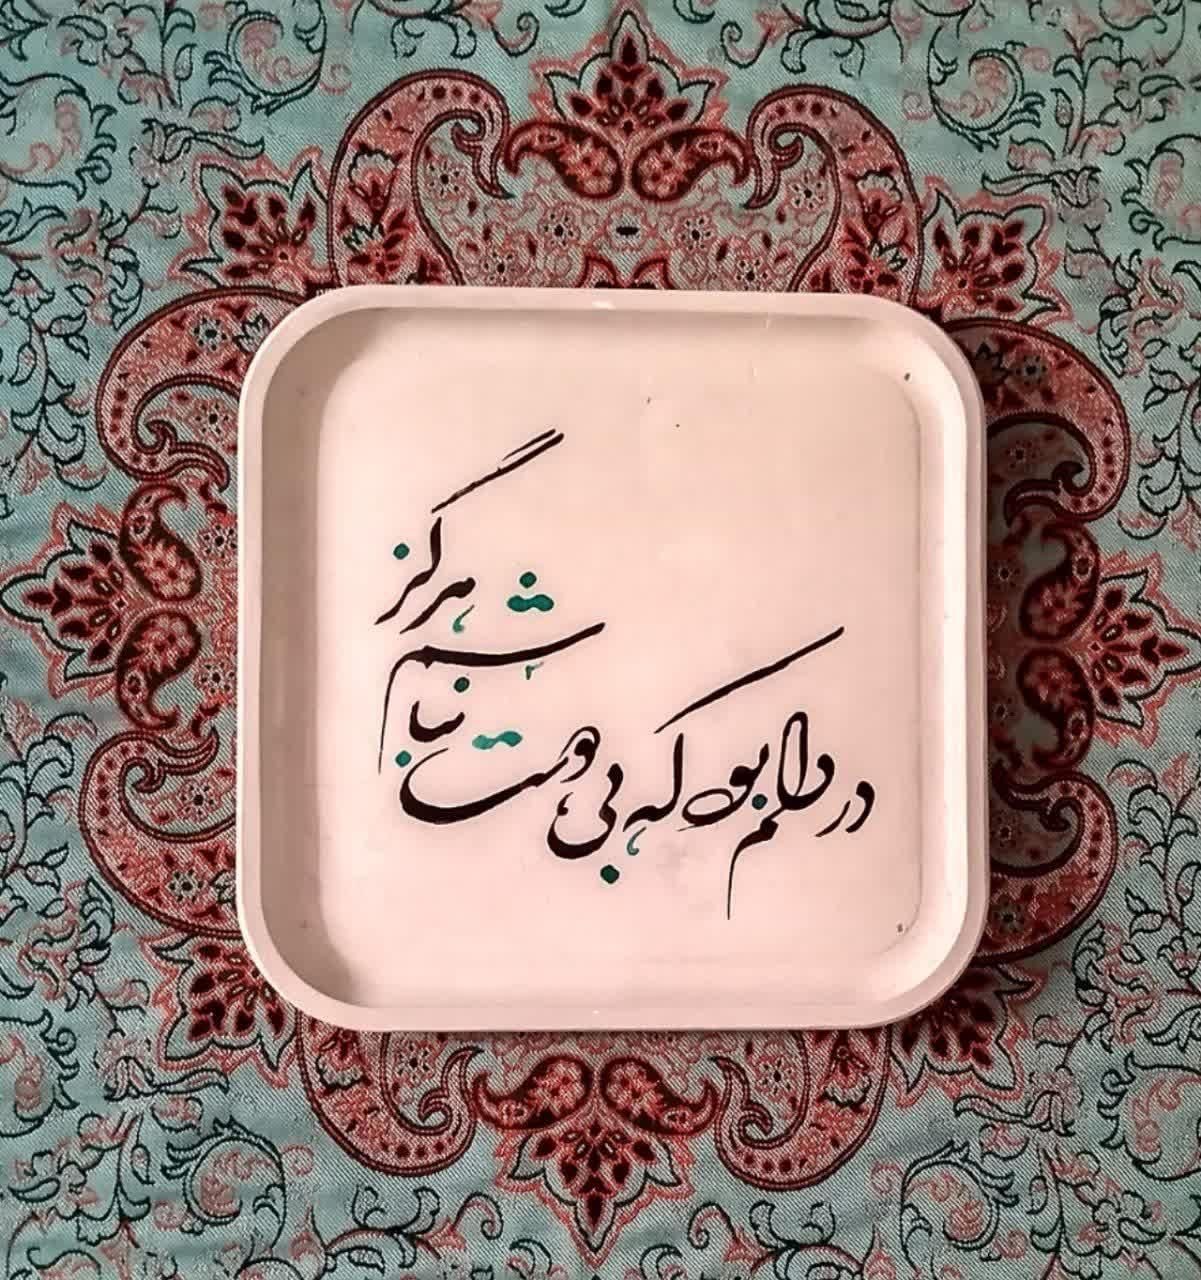 در دلم بود که بی دوست نباشم هرگز